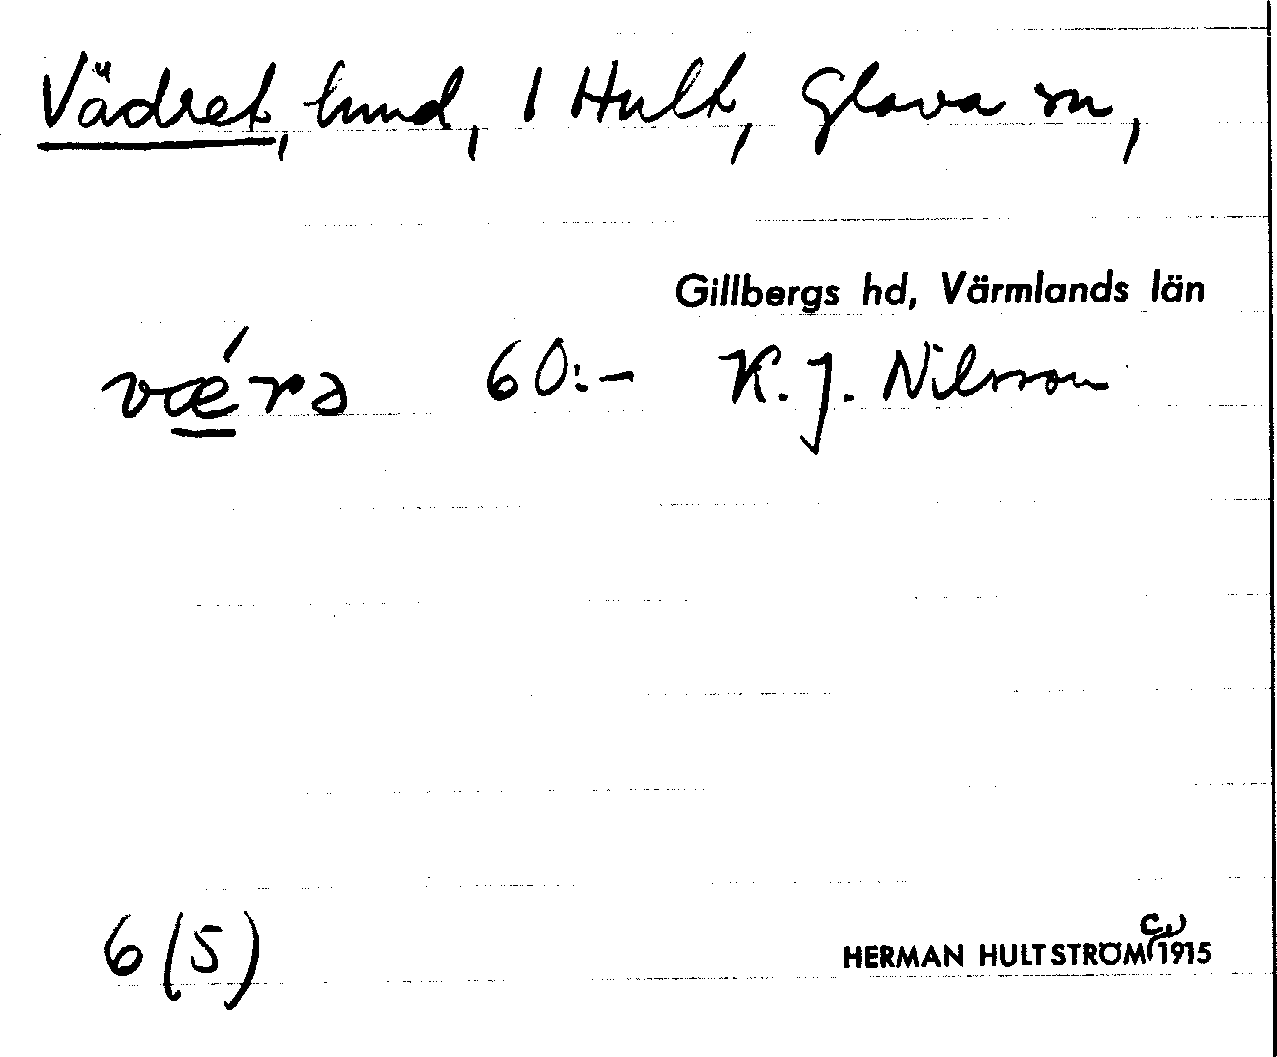 Vädret, hmd, 1 Hult, Glava sn,
Gillbergs hd, Värmlands län
vǽrə 60:- K. J. Nilsson
6 (5)
HERMAN HULTSTRÖM 1915